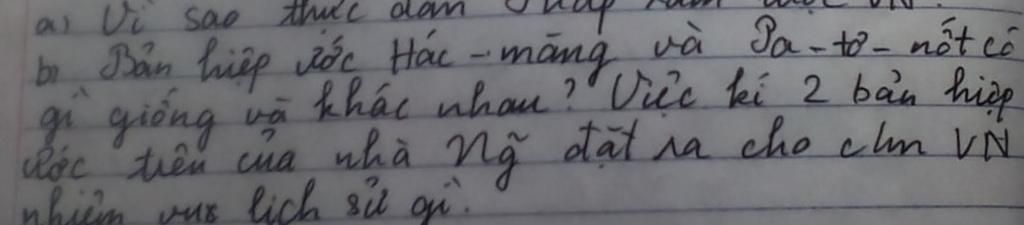 a) Vì sao thực dân Pháp xâm được VN.
b) Bản hiệp ước Hác-măng và Pa-tơ-nốt có
gì giống và khác nhau? Việc kí 2 bản hiệp
ước trên của nhà Ng~ đặt ra cho chn VN
nhiệm vụ lịch sử gì.